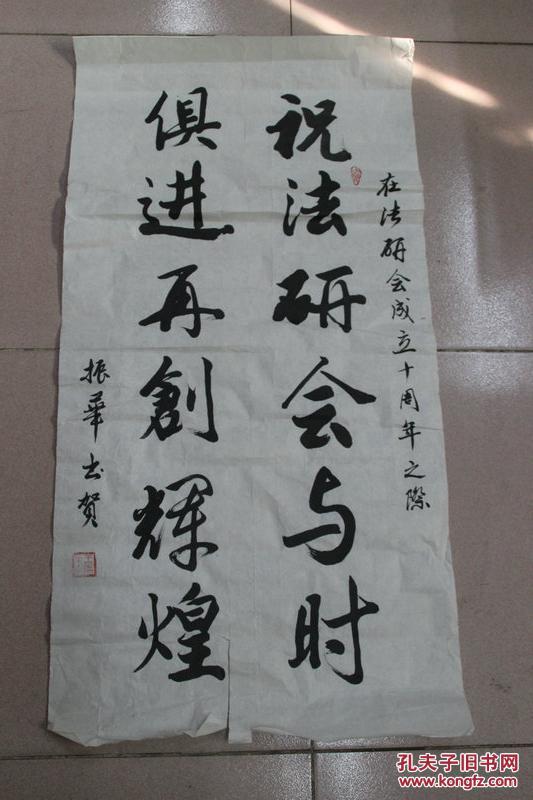 在法研会成立十周年之際
祝法研会与时
俱进再創辉煌
振華书贺
孔夫子旧书网
www.kongfz.com